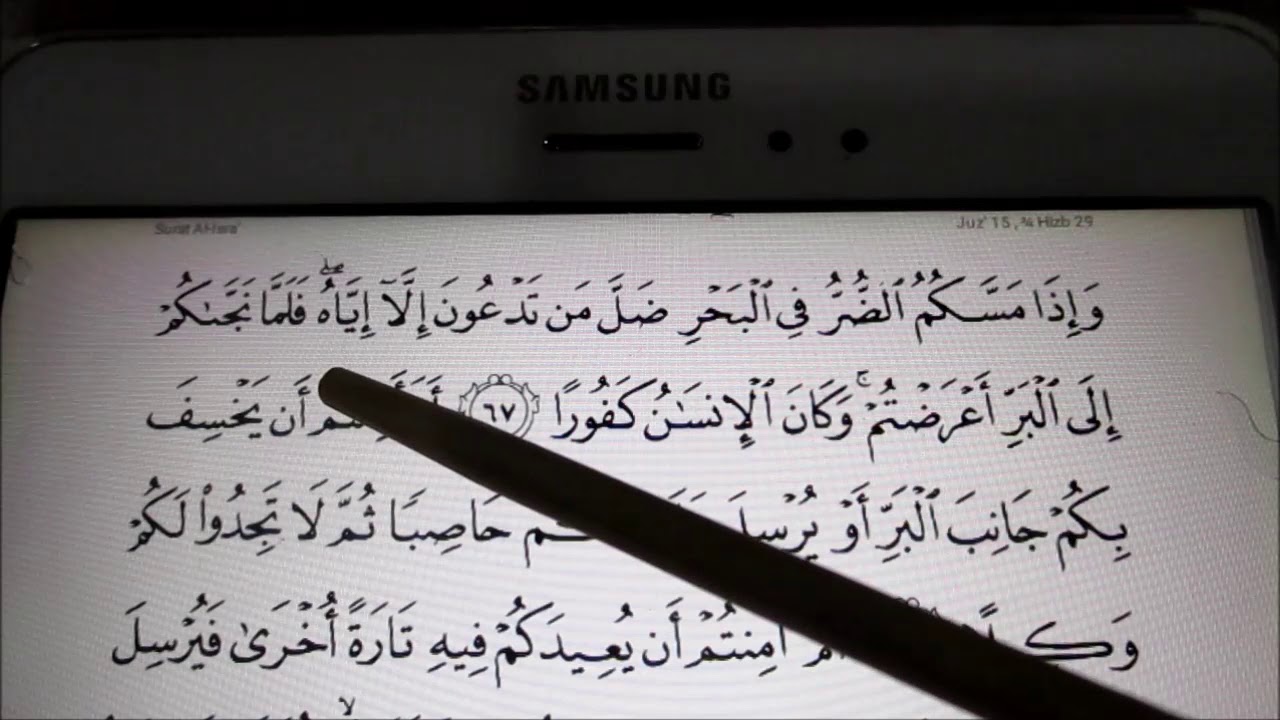 SAMSUNG
Surat Al-Isra' Juz' 15 ,¾ Hizb 29
وَإِذَا مَسَّكُمُ ٱلضُّرُّ فِي ٱلۡبَحۡرِ ضَلَّ مَن تَدۡعُونَ إِلَّآ إِيَّاهُۖ فَلَمَّا نَجَّىٰكُمۡ
إِلَى ٱلۡبَرِّ أَعۡرَضۡتُمۡۚ وَكَانَ ٱلۡإِنسَٰنُ كَفُورًا ٦٧ أَن يَخۡسِفَ
بِكُمۡ جَانِبَ ٱلۡبَرِّ أَوۡ يُرۡسِلَ حَاصِبٗا ثُمَّ لَا تَجِدُواْ لَكُمۡ
أَن يُعِيدَكُمۡ فِيهِ تَارَةً أُخۡرَىٰ فَيُرۡسِلَ